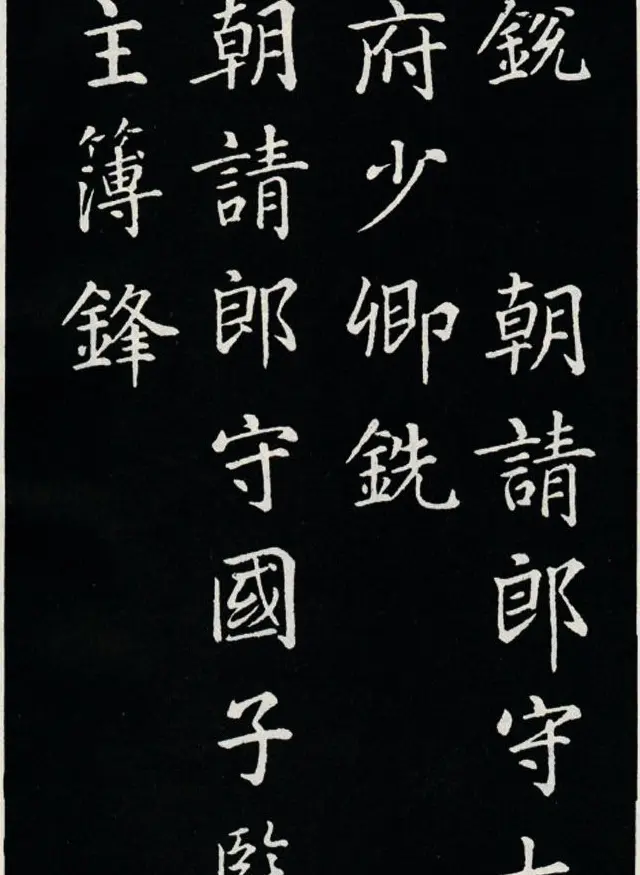 銳 朝請郎守
府少卿銑
朝請郎守國子監
主簿鋒